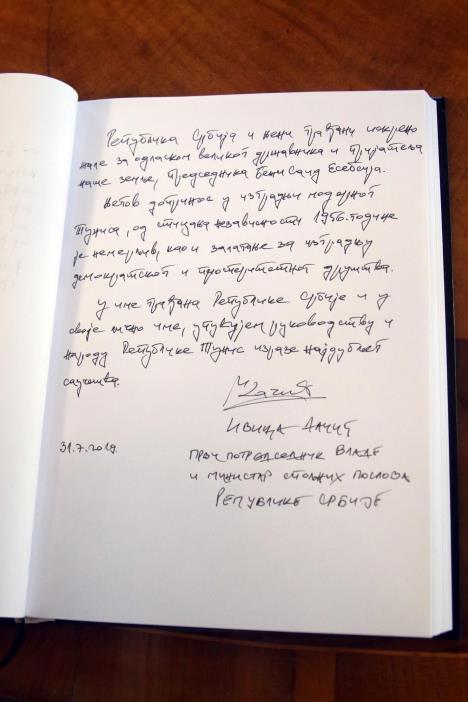 Република Србија и њени грађани искрено
жале за одласком великог државника и пријатеља
наше земље, Председника Бежи Саид Есебсија.
Његов допринос у изградњи модерног
Туниса, од стицања независности 1956. године
је немерљив, као и залагање за изградњу
демократског и просперитетног друштва.
У име грађана Републике Србије и у
своје лично име, упућујем руководству и
народу Републике Тунис изразе најдубљег
саучешћа.
Ивица Дачић
31.7.2019.
Први потпредседник Владе
и министар спољних послова
Републике Србије